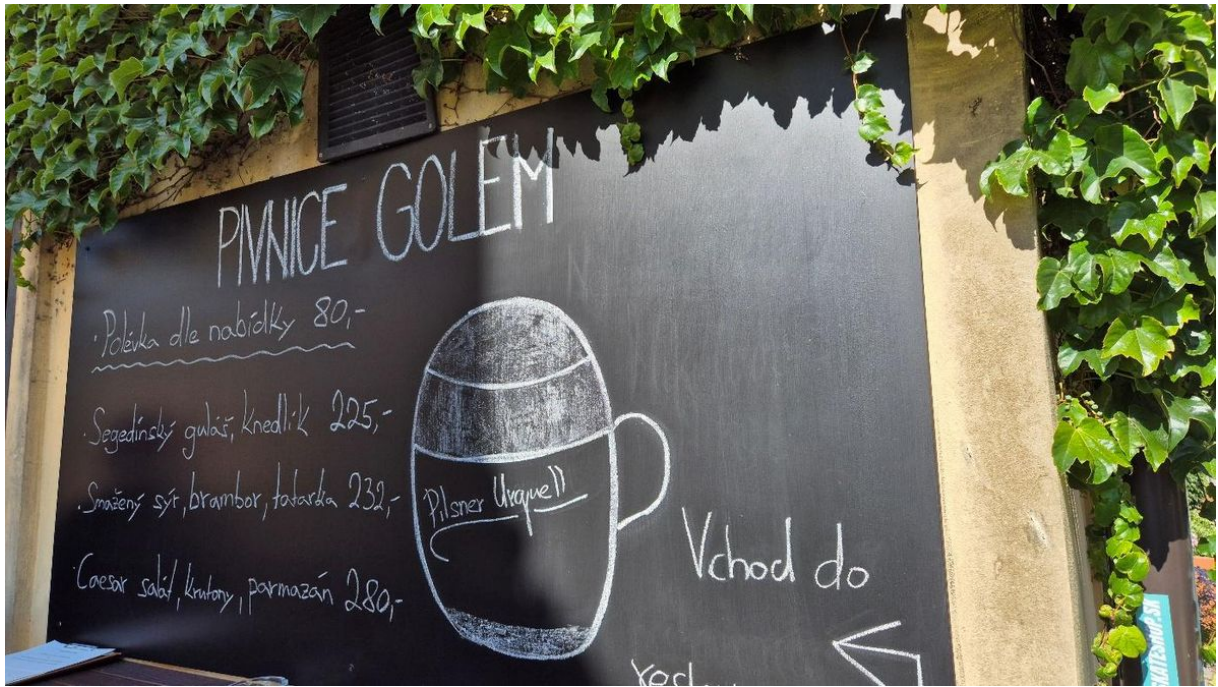 PIVNICE GOLEM
·Polévka dle nabídky 80,-
·Segedínský guláš, knedlík 225,-
·Smažený sýr, brambor, tatarka 232,-
·Caesar salát, krutony, parmazán 280,-
Pilsner Urquell
Vchod do
SKATESHOP.SK